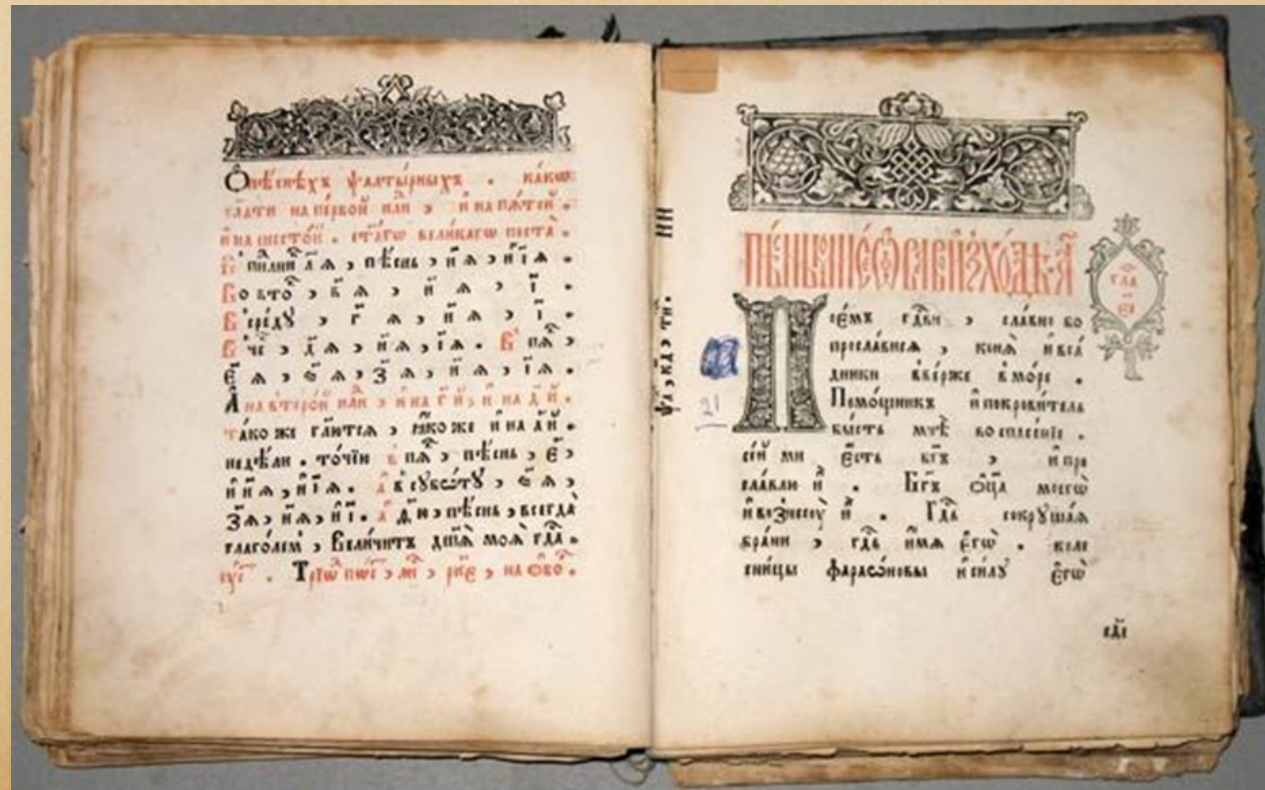 Ѻ пѣ́снехъ ѱалты́рныхъ . ка́кѡ
гл҃ати на пе́рвой нⷣли , и҆ на пѧ́той .
и҆ на шесто́й . ст҃а́гѡ вели́кагѡ поста̀ .
В̾ пⷩ҇лни а҃ ѧ , пѣ́снь , и҃ ѧ , и҆ ѳ҃ ѧ .
Во вто́ , в҃ ѧ , и҃ ѧ , і҃ .
В̾ сре́дꙋ , г҃ ѧ , и҃ ѧ , і҃ .
В̾ че́ , д҃ ѧ , и҃ ѧ , ѳ҃ ѧ . В̾ пѧ́ ,
є҃ ѧ , ѕ҃ ѧ , з҃ ѧ , и҃ ѧ , ѳ҃ ѧ .
А҆ на второ́й нⷣли , и҆ на г҃ й , и҆ на д҃ й .
та́ко же гл҃ютсѧ , ꙗ҆́ко же и҆ на а҃ й
недѣ́ли . то́чїю в̾ пѧ́ , пѣ́снь , є҃ ,
и҆ и҃ ѧ , и҆ ѳ҃ ѧ . а҆ в̾ сꙋббѡ́тꙋ , ѕ҃ ѧ ,
з҃ ѧ , и҃ ѧ , и҆ ѳ҃ .
глаго́лем̾ , Вели́читъ дш҃а̀ моѧ̀ гдⷭ҇а .
пѣ́снь мѡѷсе́ова
гла
и҃
21
Пое́мъ гдⷭ҇ви , сла́вно бо
просла́висѧ , конѧ̀ и҆ вса́
дники вве́рже в̾ мо́ре .
Помо́щникъ и҆ покрови́тель
бы́сть мнѣ̀ во спасе́нїе .
се́й ми є҆́сть бг҃ъ , и҆ про
сла́влю и҆̀ . Бг҃ъ ѻ҆ц҃а̀ моегѡ̀
и҆ вознесꙋ̀ и҆̀ . Гдⷭ҇ь сокрꙋша́ѧ
бра́ни , гдⷭ҇ь и҆́мѧ є҆гѡ̀ . коле
сни́цы фараѡ́новы и҆ си́лꙋ є҆гѡ̀